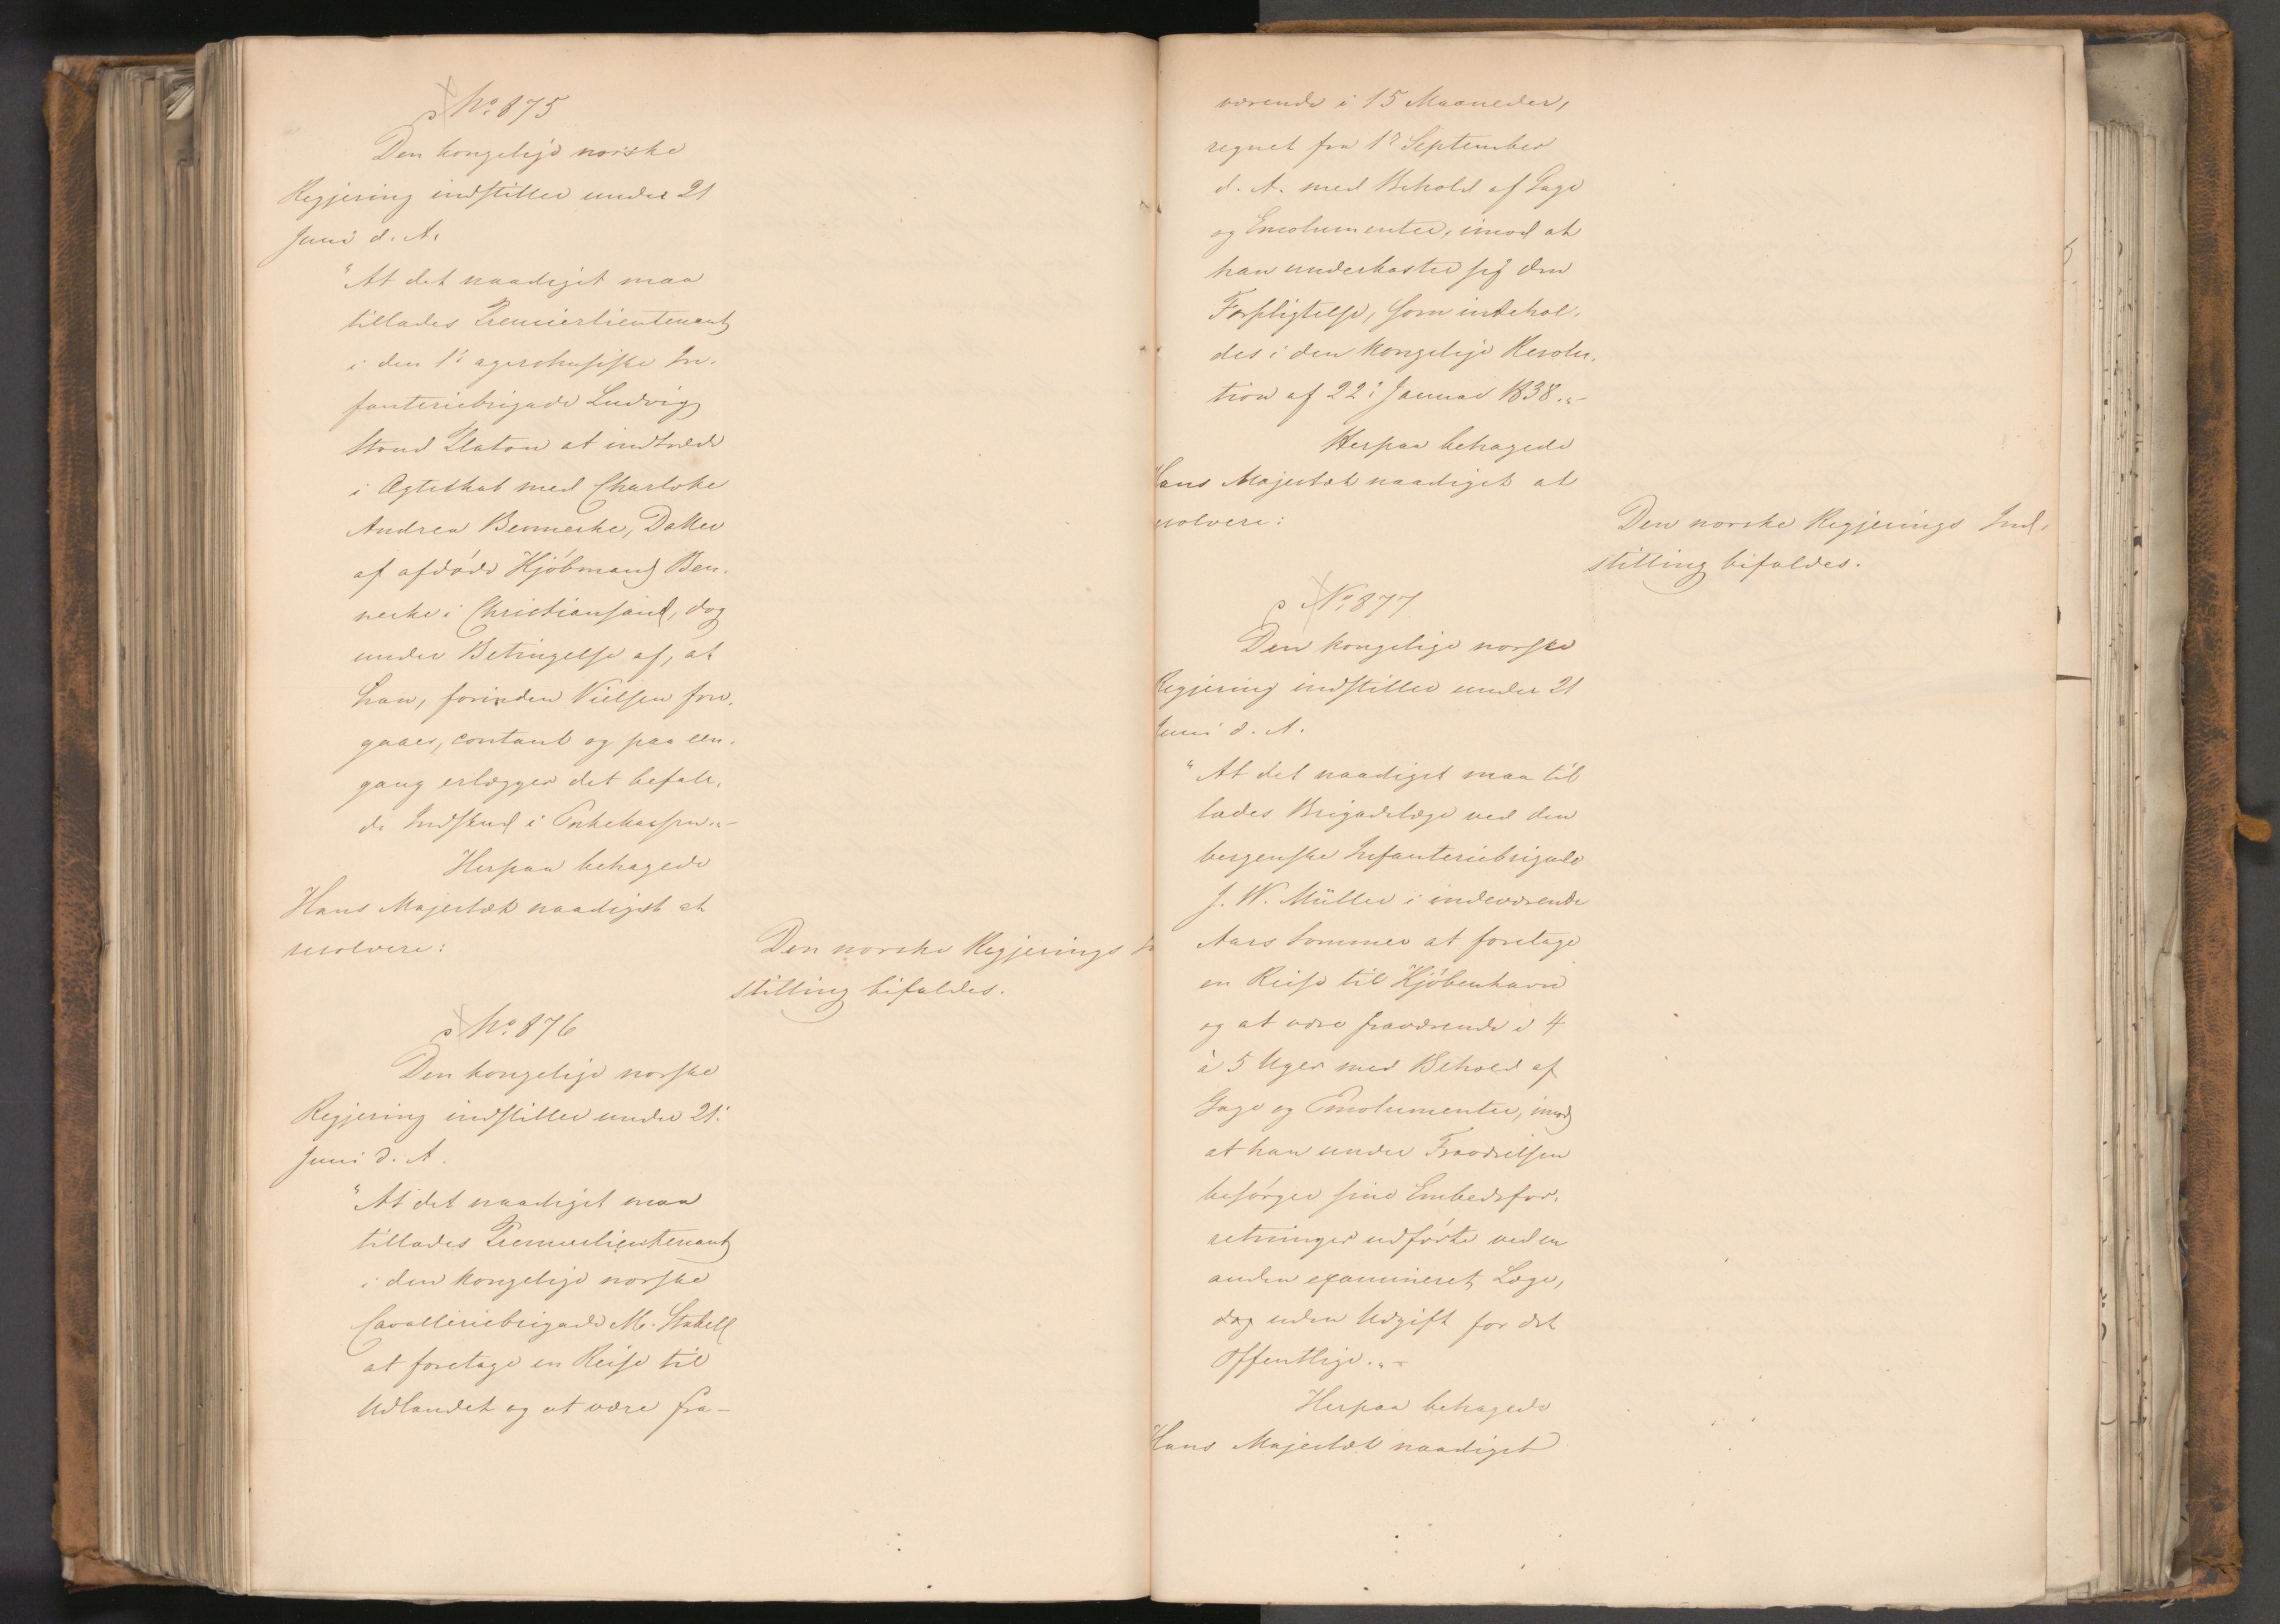 No. 875
Den kongelige norske
Regjering indstiller under 21
Juni d. A.
"At det naadigst maa
tillades Premierlieutenant
i den 1ste agershusiske In-
fanteribrigade Ludvig
Platon at indtræde
i Ægteskab med Charlotte
Andrea Bennecke, Datter
af afdøde Kjöbmand Ben-
necke i Christiansand, dog
under Betingelse af, at
han, forinden Vielsen fore-
gaaer, contant og paa een-
gang erlægger det befale-
de Indskud i Enkekassen."-
Herpaa behagede
Hans Majestæt naadigst at
resolvere:
Den norske Regjerings In
stilling bifaldes.
No. 876
Den kongelige norske
Regjering indstiller under 21:
Juni d. A.
"At det naadigst maa
tillades Premierlieutenant
i den kongelige norske
Cavalleriebrigade M. Stabell
at foretage en Reise til
Udlandet og at være fra-
værende i 15 Maaneder,
regnet fra 1ste September
d. A. med Behold af Gage
og Emolumenter, imod at
han underkaster sig den
Forpligtelse, som indehol-
des i den kongelige Resolu-
tion af 22: Januar 1838."-
Herpaa behagede
Hans Majestæt naadigst at
resolvere:
Den norske Regjerings Ind-
stilling bifaldes.
No. 877
Den kongelige norske
Regjering indstiller under 21
Juni d. A.
"At det naadigst maa til
lades Brigadelæge ved den
bergenske Infanteriebrigade
J. W. Müller i indeværende
Aars Sommer at foretage
en Reise til Kjöbenhavn
og at være fraværende i 4
à 5 Uger med Behold af
Gage og Emolumenter, imod
at han under Fraværelsen
besørger sine Embedsfor-
retninger udførte ved en
anden examineret Læge,
dog uden Udgift for det
Offentlige."-
Herpaa behagede
Hans Majestæt naadigst